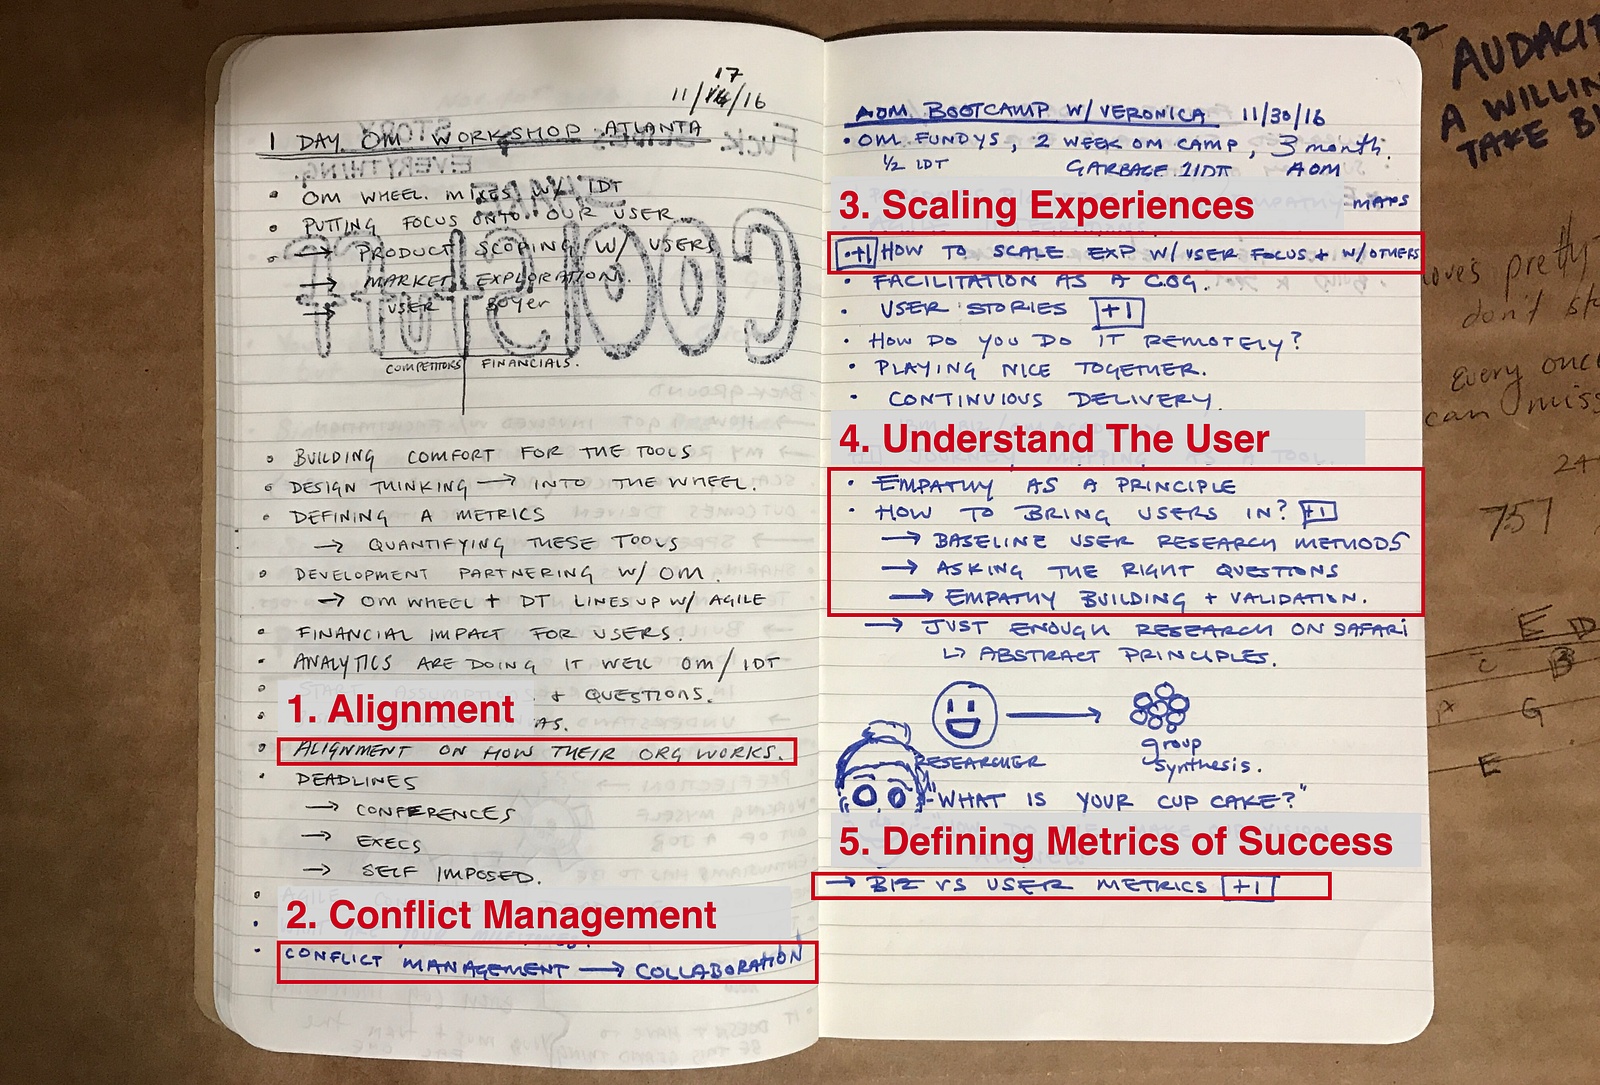 17
11/16/16
1 DAY OM WORKSHOP ATLANTA
OM WHEEL MIXES W/ IDT
PUTTING FOCUS ONTO OUR USER
→ PRODUCT SCOPING W/ USERS
→ MARKET EXPLORATION.
→ USER Boyer
COMPETITORS FINANCIALS.
BUILDING COMFORT FOR THE TOOLS
DESIGN THINKING → INTO THE WHEEL.
DEFINING A METRICS
→ QUANTIFYING THESE TOOLS
DEVELOPMENT PARTNERING W/ OM.
→ OM WHEEL + DT LINES UP W/ AGILE
FINANCIAL IMPACT FOR USERS.
ANALYTICS ARE DOING IT WELL OM/IDT
+ QUESTIONS.
1. Alignment
AS.
ALIGNMENT ON HOW THEIR ORG WORKS.
DEADLINES
→ CONFERENCES
→ EXECS
→ SELF IMPOSED.
2. Conflict Management
CONFLICT MANAGEMENT → COLLABORATION
AOM BOOTCAMP W/ VERONICA 11/30/16
• OM FUNDYS, 2 WEEK OM CAMP, 3 month.
1/2 IDT GARBAGE 1IDT AOM
3. Scaling Experiences
MAPS
+1 HOW TO SCALE EXP W/ USER FOCUS + W/OTHERS
• FACILITATION AS A COG.
• USER STORIES +1
• HOW DO YOU DO IT REMOTELY?
• PLAYING NICE TOGETHER.
• CONTINVIOUS DELIVERY.
4. Understand The User
• EMPATHY AS A PRINCIPLE
• HOW TO BRING USERS IN? +1
→ BASELINE USER RESEARCH METHODS
→ ASKING THE RIGHT QUESTIONS
→ EMPATHY BUILDING + VALIDATION.
→ JUST ENOUGH RESEARCH ON SAFARI
↳ ABSTRACT PRINCIPLES.
RESEARCHER
group
synthesis.
-"WHAT IS YOUR CUP CAKE?"
5. Defining Metrics of Success
→ BIZ VS USER METRICS +1
AUDACIT
A WILLIN
TAKE
loves pretty
don't
every once
can miss
24
757
E D
C B
G
E